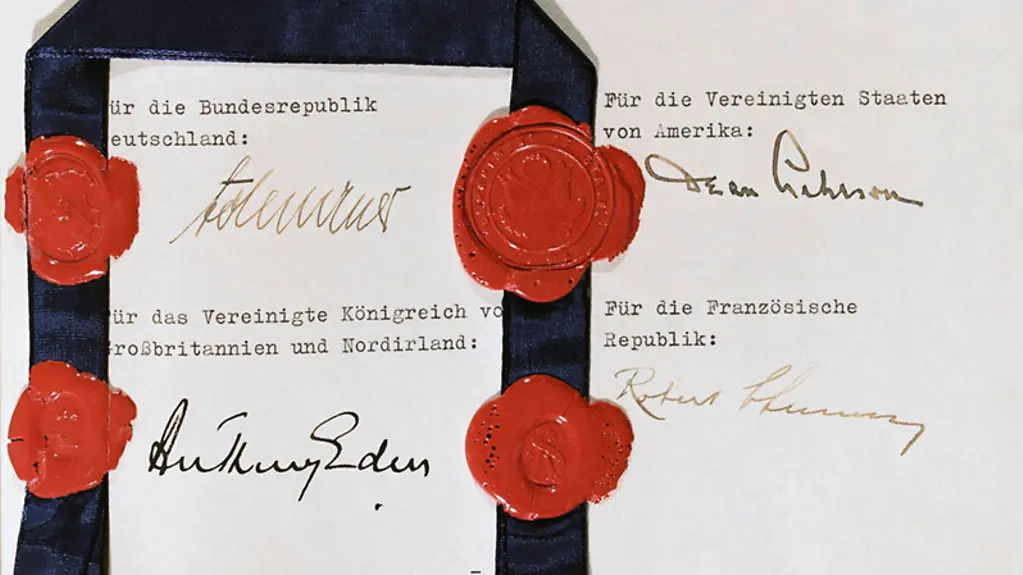 ür die Bundesrepublik
eutschland:
Adenauer
Für die Vereinigten Staaten
von Amerika:
Dean Acheson
ür das Vereinigte Königreich vo
roßbritannien und Nordirland:
Anthony Eden
Für die Französische
Republik:
Robert Schuman